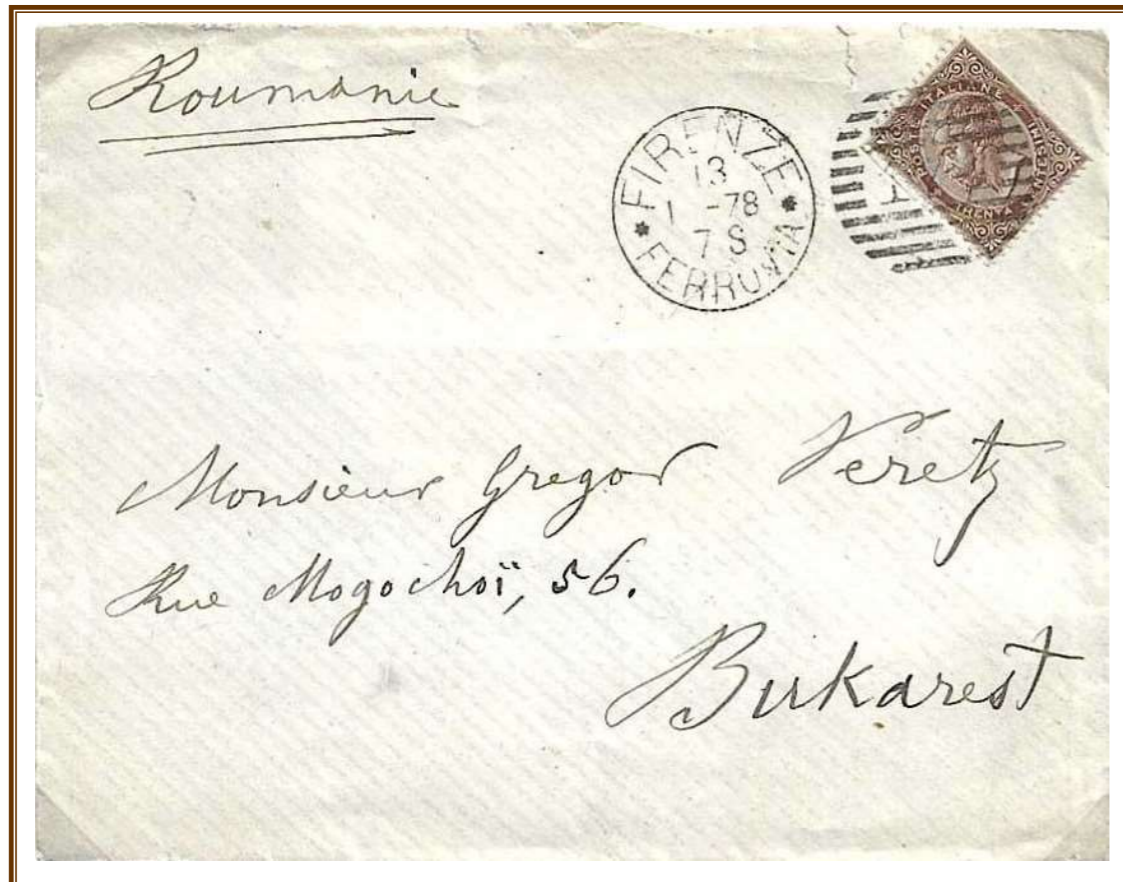 Roumanie
FIRENZE
13
1 -78
7 S
FERROVIA
POSTE ITALIANE
CENTESIMI
TRENTA
Monsieur Gregor Veretz
Rue Mogochoï, 56.
Bukarest